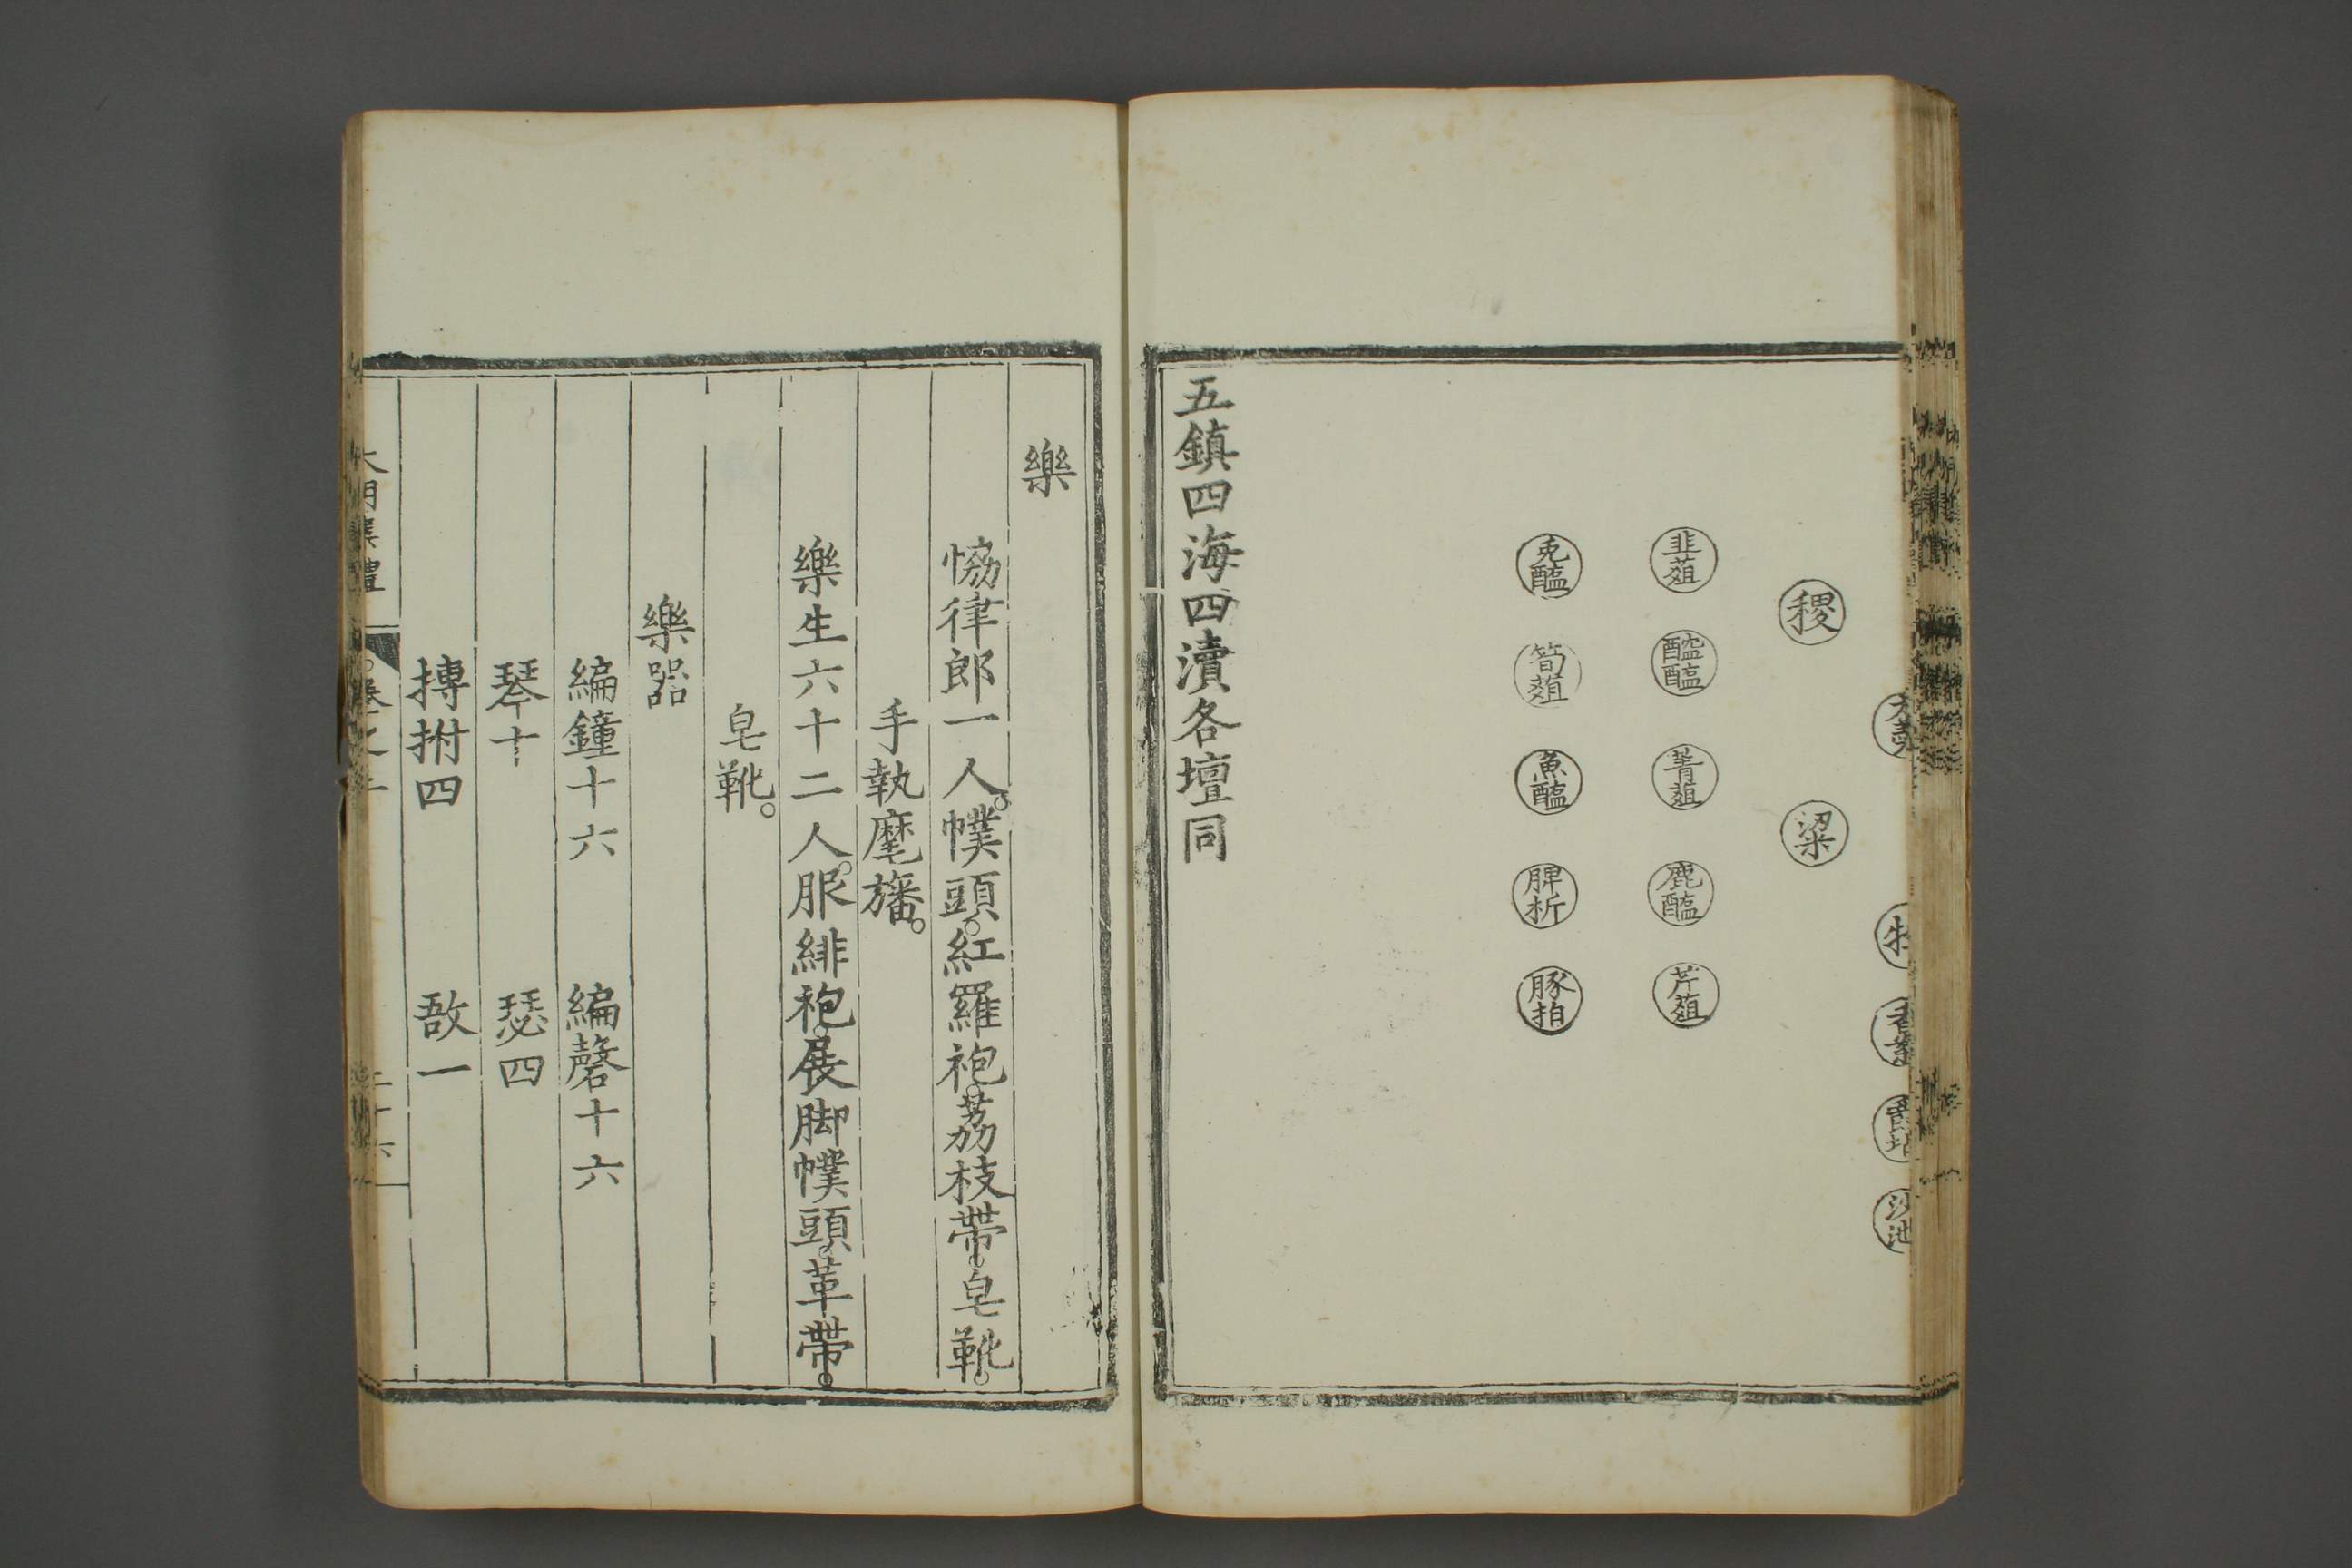 稷
粱
韭菹
醓醢
菁菹
鹿醢
芹菹
兎醢
筍菹
魚醢
脾析
豚拍
五鎮四海四瀆各壇同
樂
恊律郎一人。幞頭。紅羅袍。荔枝帶。皂靴。
手執麾旛。
樂生六十二人。服緋袍。展脚幞頭。革帶。
皂靴。
樂器
編鐘十六 編磬十六
琴十 瑟四
搏拊四 敔一
大明集禮